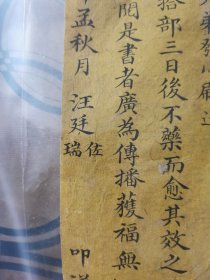 搭部三日後不藥而愈其效之
閱是書者廣為傳播獲福無
孟秋月 汪廷 瑞佐 叩